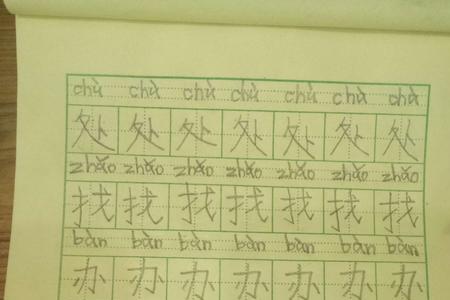 chù chù chù chù chù chù chù
处 处 处 处 处 处 处
zhǎo zhǎo zhǎo zhǎo zhǎo zhǎo zhǎo
找 找 找 找 找 找 找
bàn bàn bàn bàn bàn bàn bàn
办 办 办 办 办 办 办